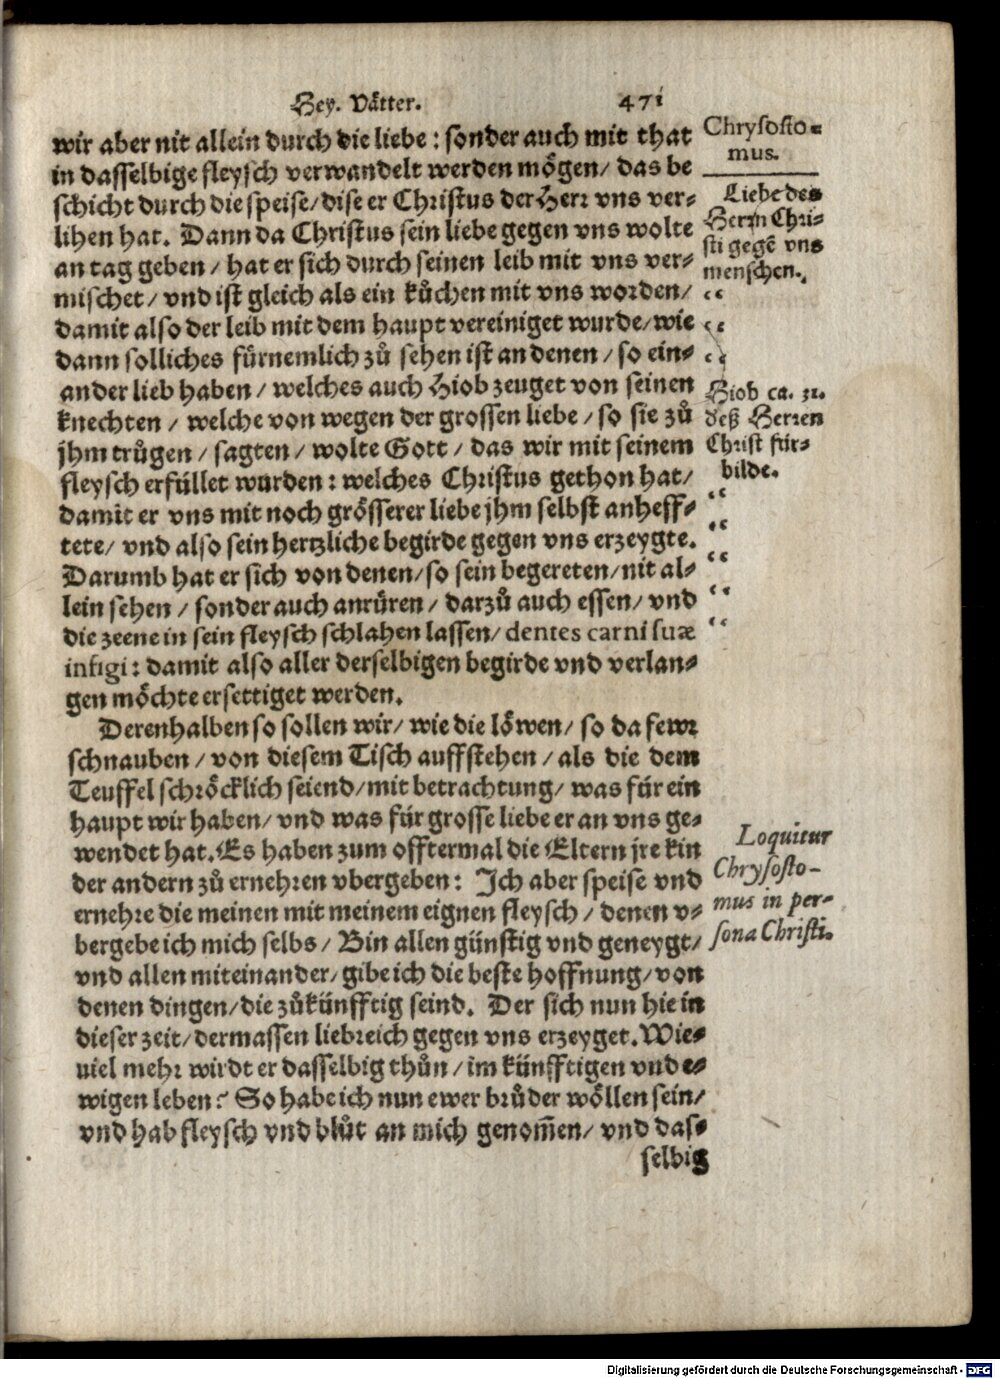 Hey. Vaͤtter. 471
wir aber nit allein durch die liebe: sonder auch mit that
in dasselbige fleysch verwandelt werden moͤgen/ das be
schicht durch die speise/ dise er Christus der Herr vns ver⸗
lihen hat. Dann da Christus sein liebe gegen vns wolte
an tag geben/ hat er sich durch seinen leib mit vns ver⸗
mischet/ vnd ist gleich als ein kuͤchen mit vns worden/
damit also der leib mit dem haupt vereiniget wurde/ wie
dann solliches fuͤrnemlich zuͦ sehen ist an denen/ so ein⸗
ander lieb haben/ welches auch Hiob zeuget von seinen
knechten/ welche von wegen der grossen liebe/ so sie zuͦ
jhm truͦgen/ sagten/ wolte Gott/ das wir mit seinem
fleysch erfuͤllet wurden: welches Christus gethon hat/
damit er vns mit noch groͤsserer liebe jhm selbst anheff⸗
tete/ vnd also sein hertzliche begirde gegen vns erzeygte.
Darumb hat er sich von denen/ so sein begereten/ nit al⸗
lein sehen/ sonder auch anruͤren/ darzuͦ auch essen/ vnd
die zeene in sein fleysch schlahen lassen/ dentes carni suæ
infigi: damit also aller derselbigen begirde vnd verlan⸗
gen moͤchte ersettiget werden.
Derenhalben so sollen wir/ wie die loͤwen/ so da fewr
schnauben/ von diesem Tisch auffstehen/ als die dem
Teuffel schroͤcklich seiend/ mit betrachtung/ was fuͤr ein
haupt wir haben/ vnd was fuͤr grosse liebe er an vns ge⸗
wendet hat. Es haben zum offtermal die Eltern jre kin
der andern zuͦ ernehren vbergeben: Ich aber speise vnd
ernehre die meinen mit meinem eignen fleysch/ denen v⸗
bergebe ich mich selbs/ Bin allen guͤnstig vnd geneygt/
vnd allen miteinander/ gibe ich die beste hoffnung/ von
denen dingen/ die zuͦkuͤnfftig seind. Der sich nun hie in
dieser zeit/ dermassen liebreich gegen vns erzeyget. Wie⸗
uiel mehr wirdt er dasselbig thuͦn/ im kuͤnfftigen vnd e⸗
wigen leben? So habe ich nun ewer bruͦder woͤllen sein/
vnd hab fleysch vnd bluͦt an mich genom̄en/ vnd das⸗
selbig
Chrysosto⸗
mus.
Liebe des
Herrn Chri⸗
sti gegē vns
menschen.
“
“
“
Hiob ca. 31.
deß Herren
Christ fuͤr⸗
bilde.
“
“
“
“
“
Loquitur
Chrysosto-
mus in per-
sona Christi.
Digitalisierung gefördert durch die Deutsche Forschungsgemeinschaft - DFG